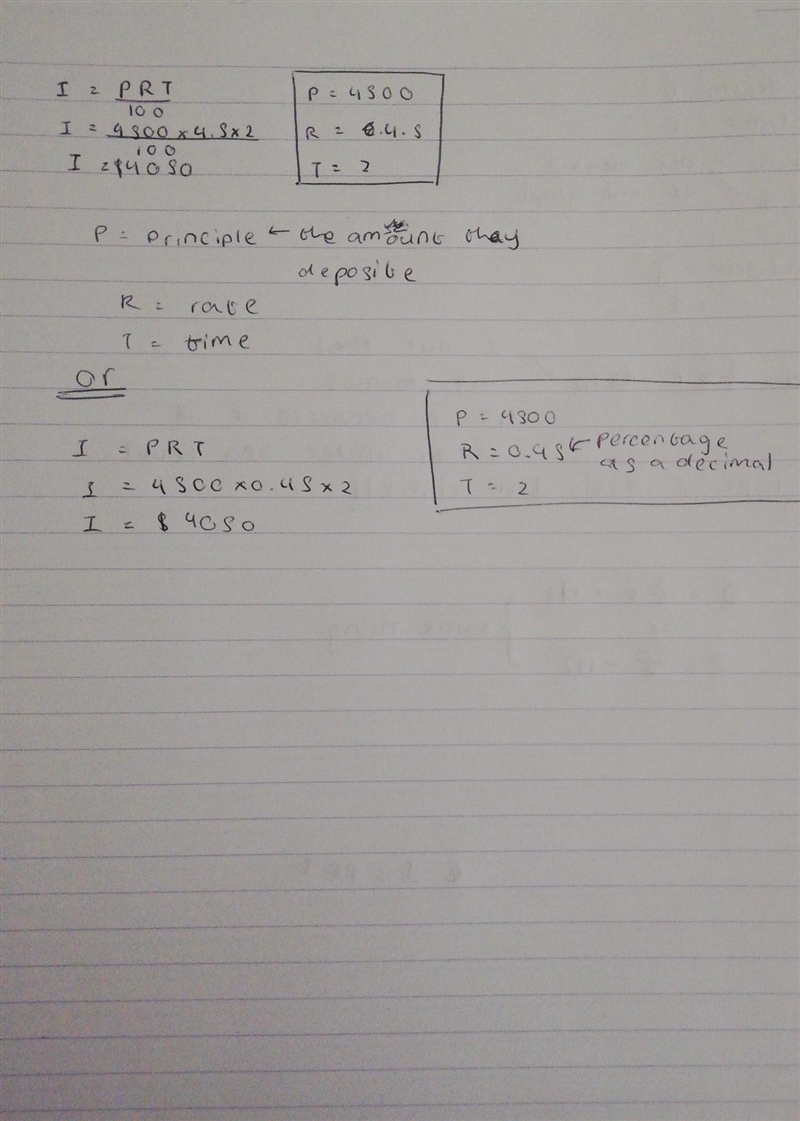 I = PRT
100
I = 4500 x 4.5 x 2
100
I = $4050
P = 4500
R = 4.5
T = 2
P = principle ← the amount they
deposite
R = rate
T = time
or
I = PRT
I = 4500 x 0.45 x 2
I = $4050
P = 4500
R = 0.45 ← percentage
as a decimal
T = 2